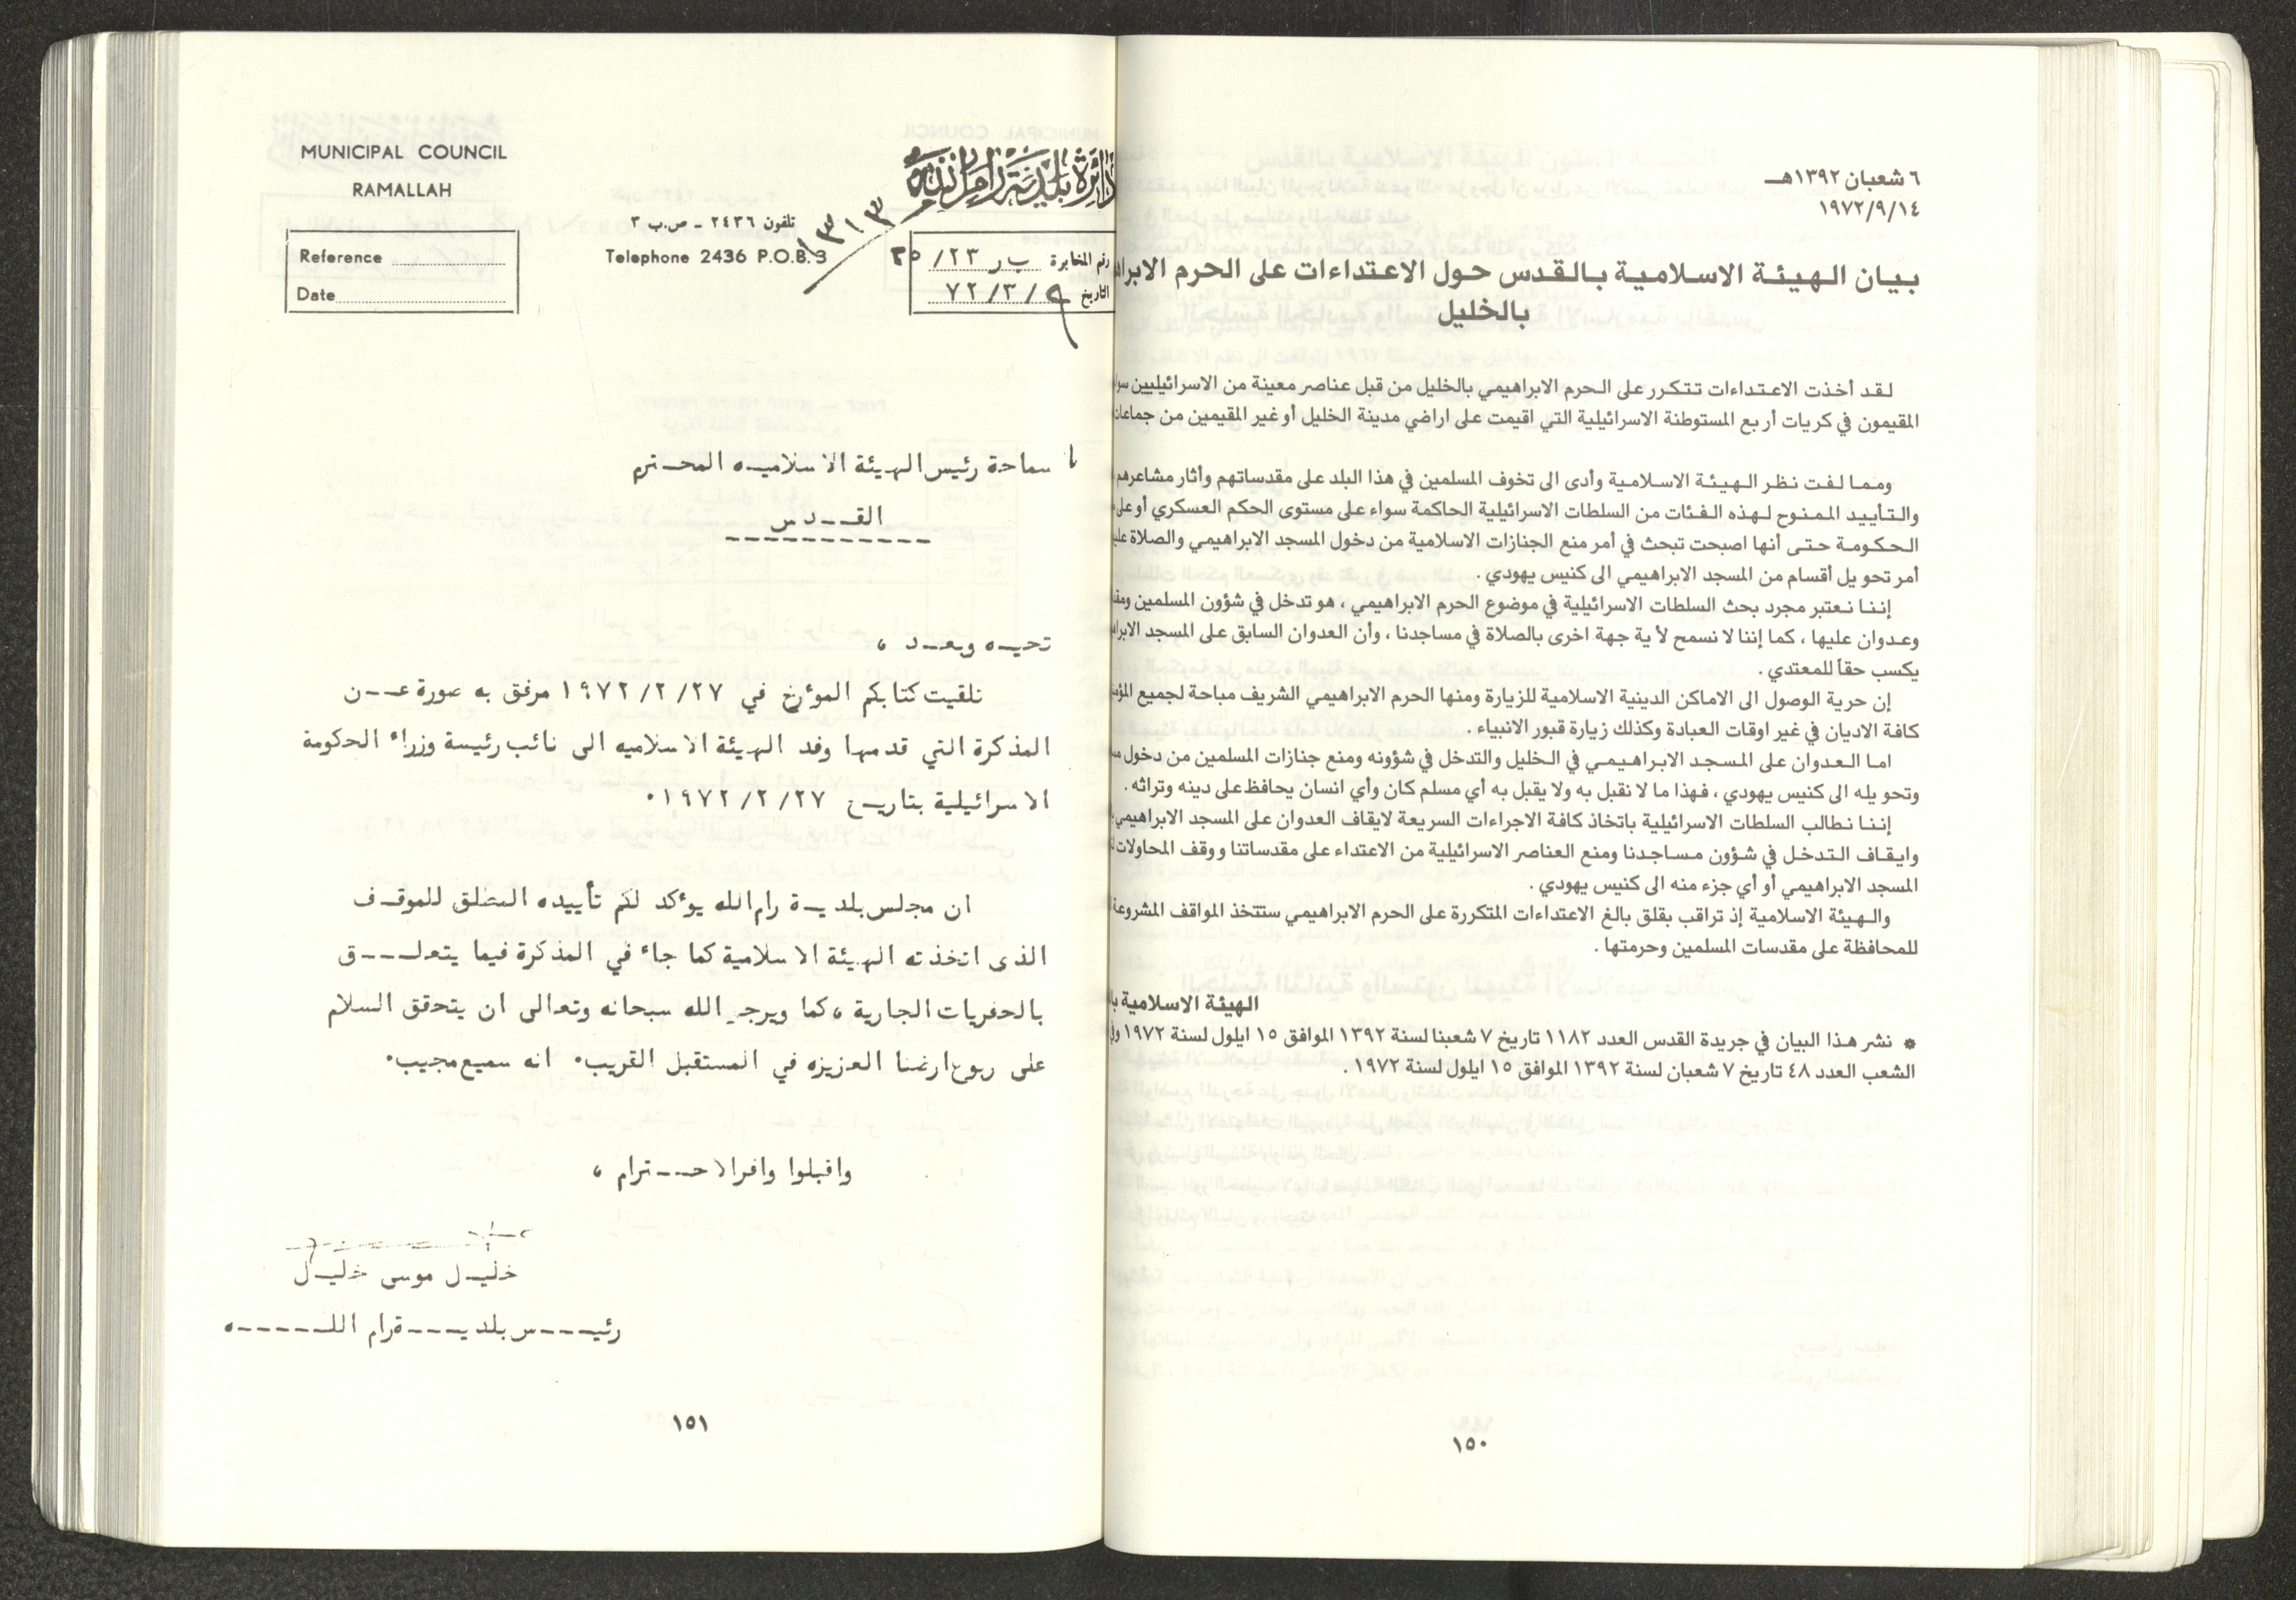 ٦ شعبان ١٣٩٢هـ
١٩٧٢/٩/١٤
بيان الهيئة الاسلامية بالقدس حول الاعتداءات على الحرم
بالخليل
لقد أخذت الاعتداءات تتكرر على الحرم الابراهيمي بالخليل من قبل عناصر معينة من الاسرائيليين
المقيمون في كريات أربع المستوطنة الاسرائيلية التي اقيمت على اراضي مدينة الخليل أو غير المقيمين من
ومما لفت نظر الهيئة الاسلامية وأدى الى تخوف المسلمين في هذا البلد على مقدساتهم وأثار مشاعرهم
والتأييد الممنوح لهذه الفئات من السلطات الاسرائيلية الحاكمة سواء على مستوى الحكم العسكري أو
الحكومة حتى أنها اصبحت تبحث في أمر منع الجنازات الاسلامية من دخول المسجد الابراهيمي والصلاة
أمر تحويل أقسام من المسجد الابراهيمي الى كنيس يهودي .
إننا نعتبر مجرد بحث السلطات الاسرائيلية في موضوع الحرم الابراهيمي ، هو تدخل في شؤون المسلمين
وعدوان عليها ، كما إننا لا نسمح لأية جهة اخرى بالصلاة في مساجدنا ، وأن العدوان السابق على المسجد
يكسب حقاً للمعتدي .
إن حرية الوصول الى الاماكن الدينية الاسلامية للزيارة ومنها الحرم الابراهيمي الشريف مباحة لجميع
كافة الاديان في غير اوقات العبادة وكذلك زيارة قبور الانبياء .
اما العدوان على المسجد الابراهيمي في الخليل والتدخل في شؤونه ومنع جنازات المسلمين من دخول
وتحويله الى كنيس يهودي ، فهذا ما لا نقبل به ولا يقبل به أي مسلم كان وأي انسان يحافظ على دينه وتراثه .
إننا نطالب السلطات الاسرائيلية باتخاذ كافة الاجراءات السريعة لايقاف العدوان على المسجد الابراهيمي
وايقاف التدخل في شؤون مساجدنا ومنع العناصر الاسرائيلية من الاعتداء على مقدساتنا ووقف المحاولات
المسجد الابراهيمي أو أي جزء منه الى كنيس يهودي .
والهيئة الاسلامية إذ تراقب بقلق بالغ الاعتداءات المتكررة على الحرم الابراهيمي ستتخذ المواقف المشروعة
للمحافظة على مقدسات المسلمين وحرمتها .
الهيئة الاسلامية
* نشر هذا البيان في جريدة القدس العدد ١١٨٢ تاريخ ٧ شعبنا لسنة ١٣٩٢ الموافق ١٥ ايلول لسنة ١٩٧٢
الشعب العدد ٤٨ تاريخ ٧ شعبان لسنة ١٣٩٢ الموافق ١٥ ايلول لسنة ١٩٧٢ .
١٥٠
MUNICIPAL COUNCIL
RAMALLAH
دائرة بلدية رام الله
١٣١٣
تلفون ٢٤٣٦ - ص.ب ٣
Telephone 2436 P.O.B. 3
Reference
Date
رقم المخابرة ب ر ٢٣/ ٢٥
التاريخ ٧٢/٣/٩
سماحة رئيس الهيئة الاسلاميه المحـترم
القــدس
تحيـه وبعـد ،
تلقيت كتابكم المؤرخ في ١٩٧٢/٢/٢٧ مرفق به صورة عــن
المذكرة التي قدمها وفد الهيئة الاسلاميه الى نائب رئيسة وزراء الحكومة
الاسرائيلية بتاريـخ ١٩٧٢/٢/٢٧٠
ان مجلس بلديـة رام الله يؤكد لكم تأييده المطلق للموقـف
الذى اتخذته الهيئة الاسلامية كما جاء في المذكرة فيما يتعلــق
بالحفريات الجارية ، كما ويرجو الله سبحانه وتعالى ان يتحقق السلام
على ربوع ارضنا العزيزه في المستقبل القريب٠ انه سميع مجيب٠
واقبلوا وافر الاحــترام ،
خليـل موسى خليـل
رئيــس بلديــة رام اللــه
١٥١